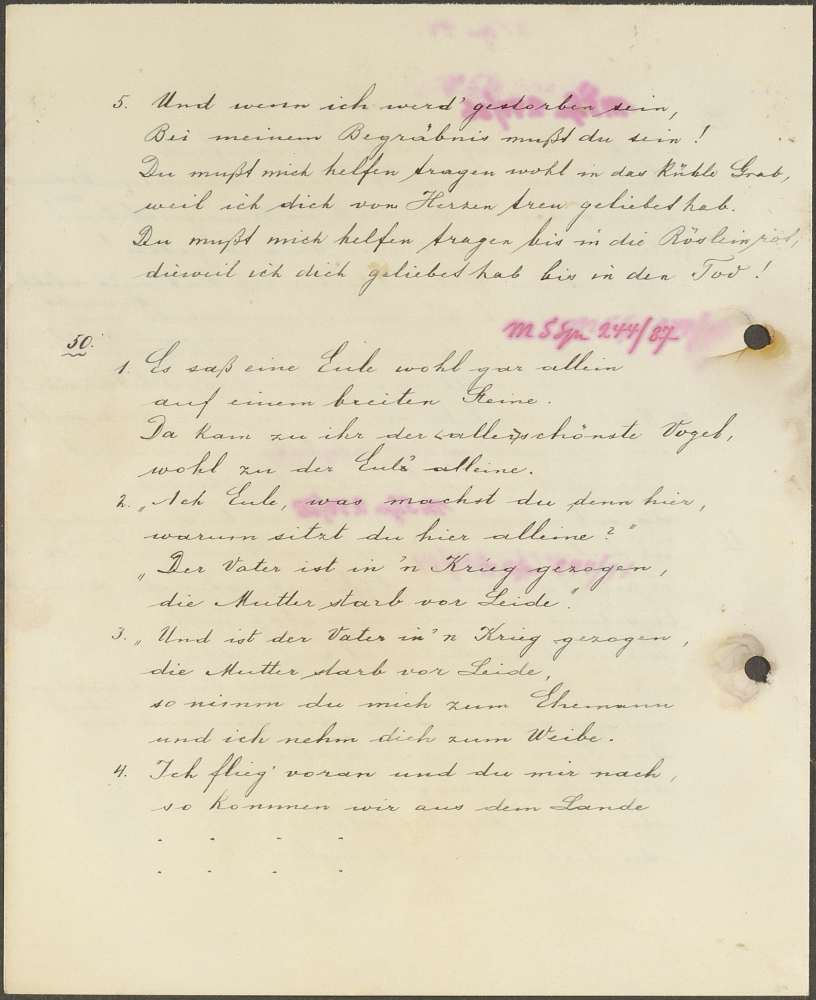 5. Und wenn ich werd' gestorben sein,
Bei meinem Begräbnis mußt du sein!
Du mußt mich helfen tragen wohl in das kühle Grab,
weil ich dich von Herzen treu geliebet hab.
Du mußt mich helfen tragen bis in die Röslein rot,
dieweil ich dich geliebet hab bis in den Tod!
M S Spr 244/87
50.
1. Es saß eine Eule wohl gar allein
auf einem breiten Steine.
Da kam zu ihr der <aller>schönste Vogel,
wohl zu der Eul' alleine.
2. „Ach Eule, was machst du denn hier,
warum sitzt du hier alleine?"
„Der Vater ist in 'n Krieg gezogen,
die Mutter starb vor Leide".
3. „Und ist der Vater in 'n Krieg gezogen,
die Mutter starb vor Leide,
so nimm du mich zum Ehemann
und ich nehm dich zum Weibe.
4. Ich flieg' voran und du mir nach,
so kommen wir aus dem Lande
- - - -
- - - -